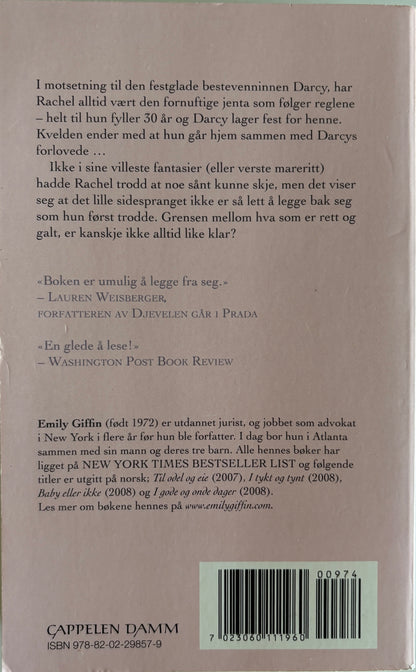 I motsetning til den festglade bestevenninnen Darcy, har
Rachel alltid vært den fornuftige jenta som følger reglene
– helt til hun fyller 30 år og Darcy lager fest for henne.
Kvelden ender med at hun går hjem sammen med Darcys
forlovede ...
Ikke i sine villeste fantasier (eller verste mareritt)
hadde Rachel trodd at noe sånt kunne skje, men det viser
seg at det lille sidespranget ikke er så lett å legge bak seg
som hun først trodde. Grensen mellom hva som er rett og
galt, er kanskje ikke alltid like klar?
«Boken er umulig å legge fra seg.»
– LAUREN WEISBERGER,
FORFATTEREN AV DJEVELEN GÅR I PRADA
«En glede å lese!»
– WASHINGTON POST BOOK REVIEW
Emily Giffin (født 1972) er utdannet jurist, og jobbet som advokat
i New York i flere år før hun ble forfatter. I dag bor hun i Atlanta
sammen med sin mann og deres tre barn. Alle hennes bøker har
ligget på NEW YORK TIMES BESTSELLER LIST og følgende
titler er utgitt på norsk; Til odel og eie (2007), I tykt og tynt (2008),
Baby eller ikke (2008) og I gode og onde dager (2008).
Les mer om bøkene hennes på www.emilygiffin.com.
00974
7 023060 111960
CAPPELEN DAMM
ISBN 978-82-02-29857-9